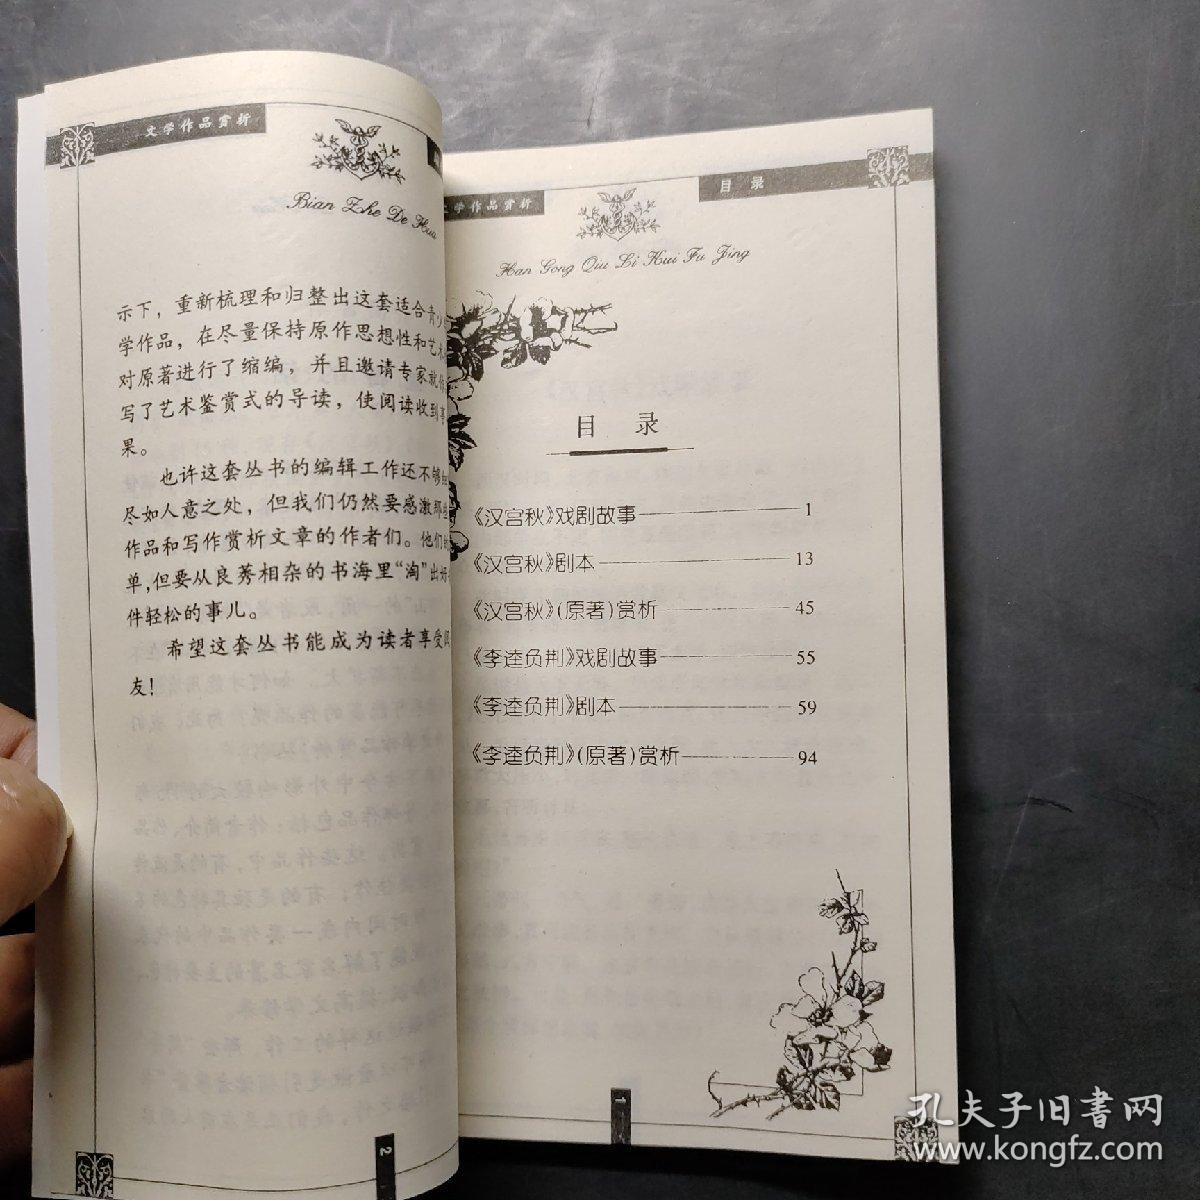 文学作品赏析
Bian Zhe De Hua
示下，重新梳理和归整出这套适合青少
学作品，在尽量保持原作思想性和艺术
对原著进行了缩编，并且邀请专家就
写了艺术鉴赏式的导读，使阅读收到事
果。
也许这套丛书的编辑工作还不够
尽如人意之处，但我们仍然要感激那些
作品和写作赏析文章的作者们。他们
单，但要从良莠相杂的书海里“淘”出好
件轻松的事儿。
希望这套丛书能成为读者享受
友！
2
文学作品赏析
目录
Han Gong Qiu Li Kui Fu Jing
目 录
《汉宫秋》戏剧故事 1
《汉宫秋》剧本 13
《汉宫秋》（原著）赏析 45
《李逵负荆》戏剧故事 55
《李逵负荆》剧本 59
《李逵负荆》（原著）赏析 94
1
孔夫子旧书网
www.kongfz.com